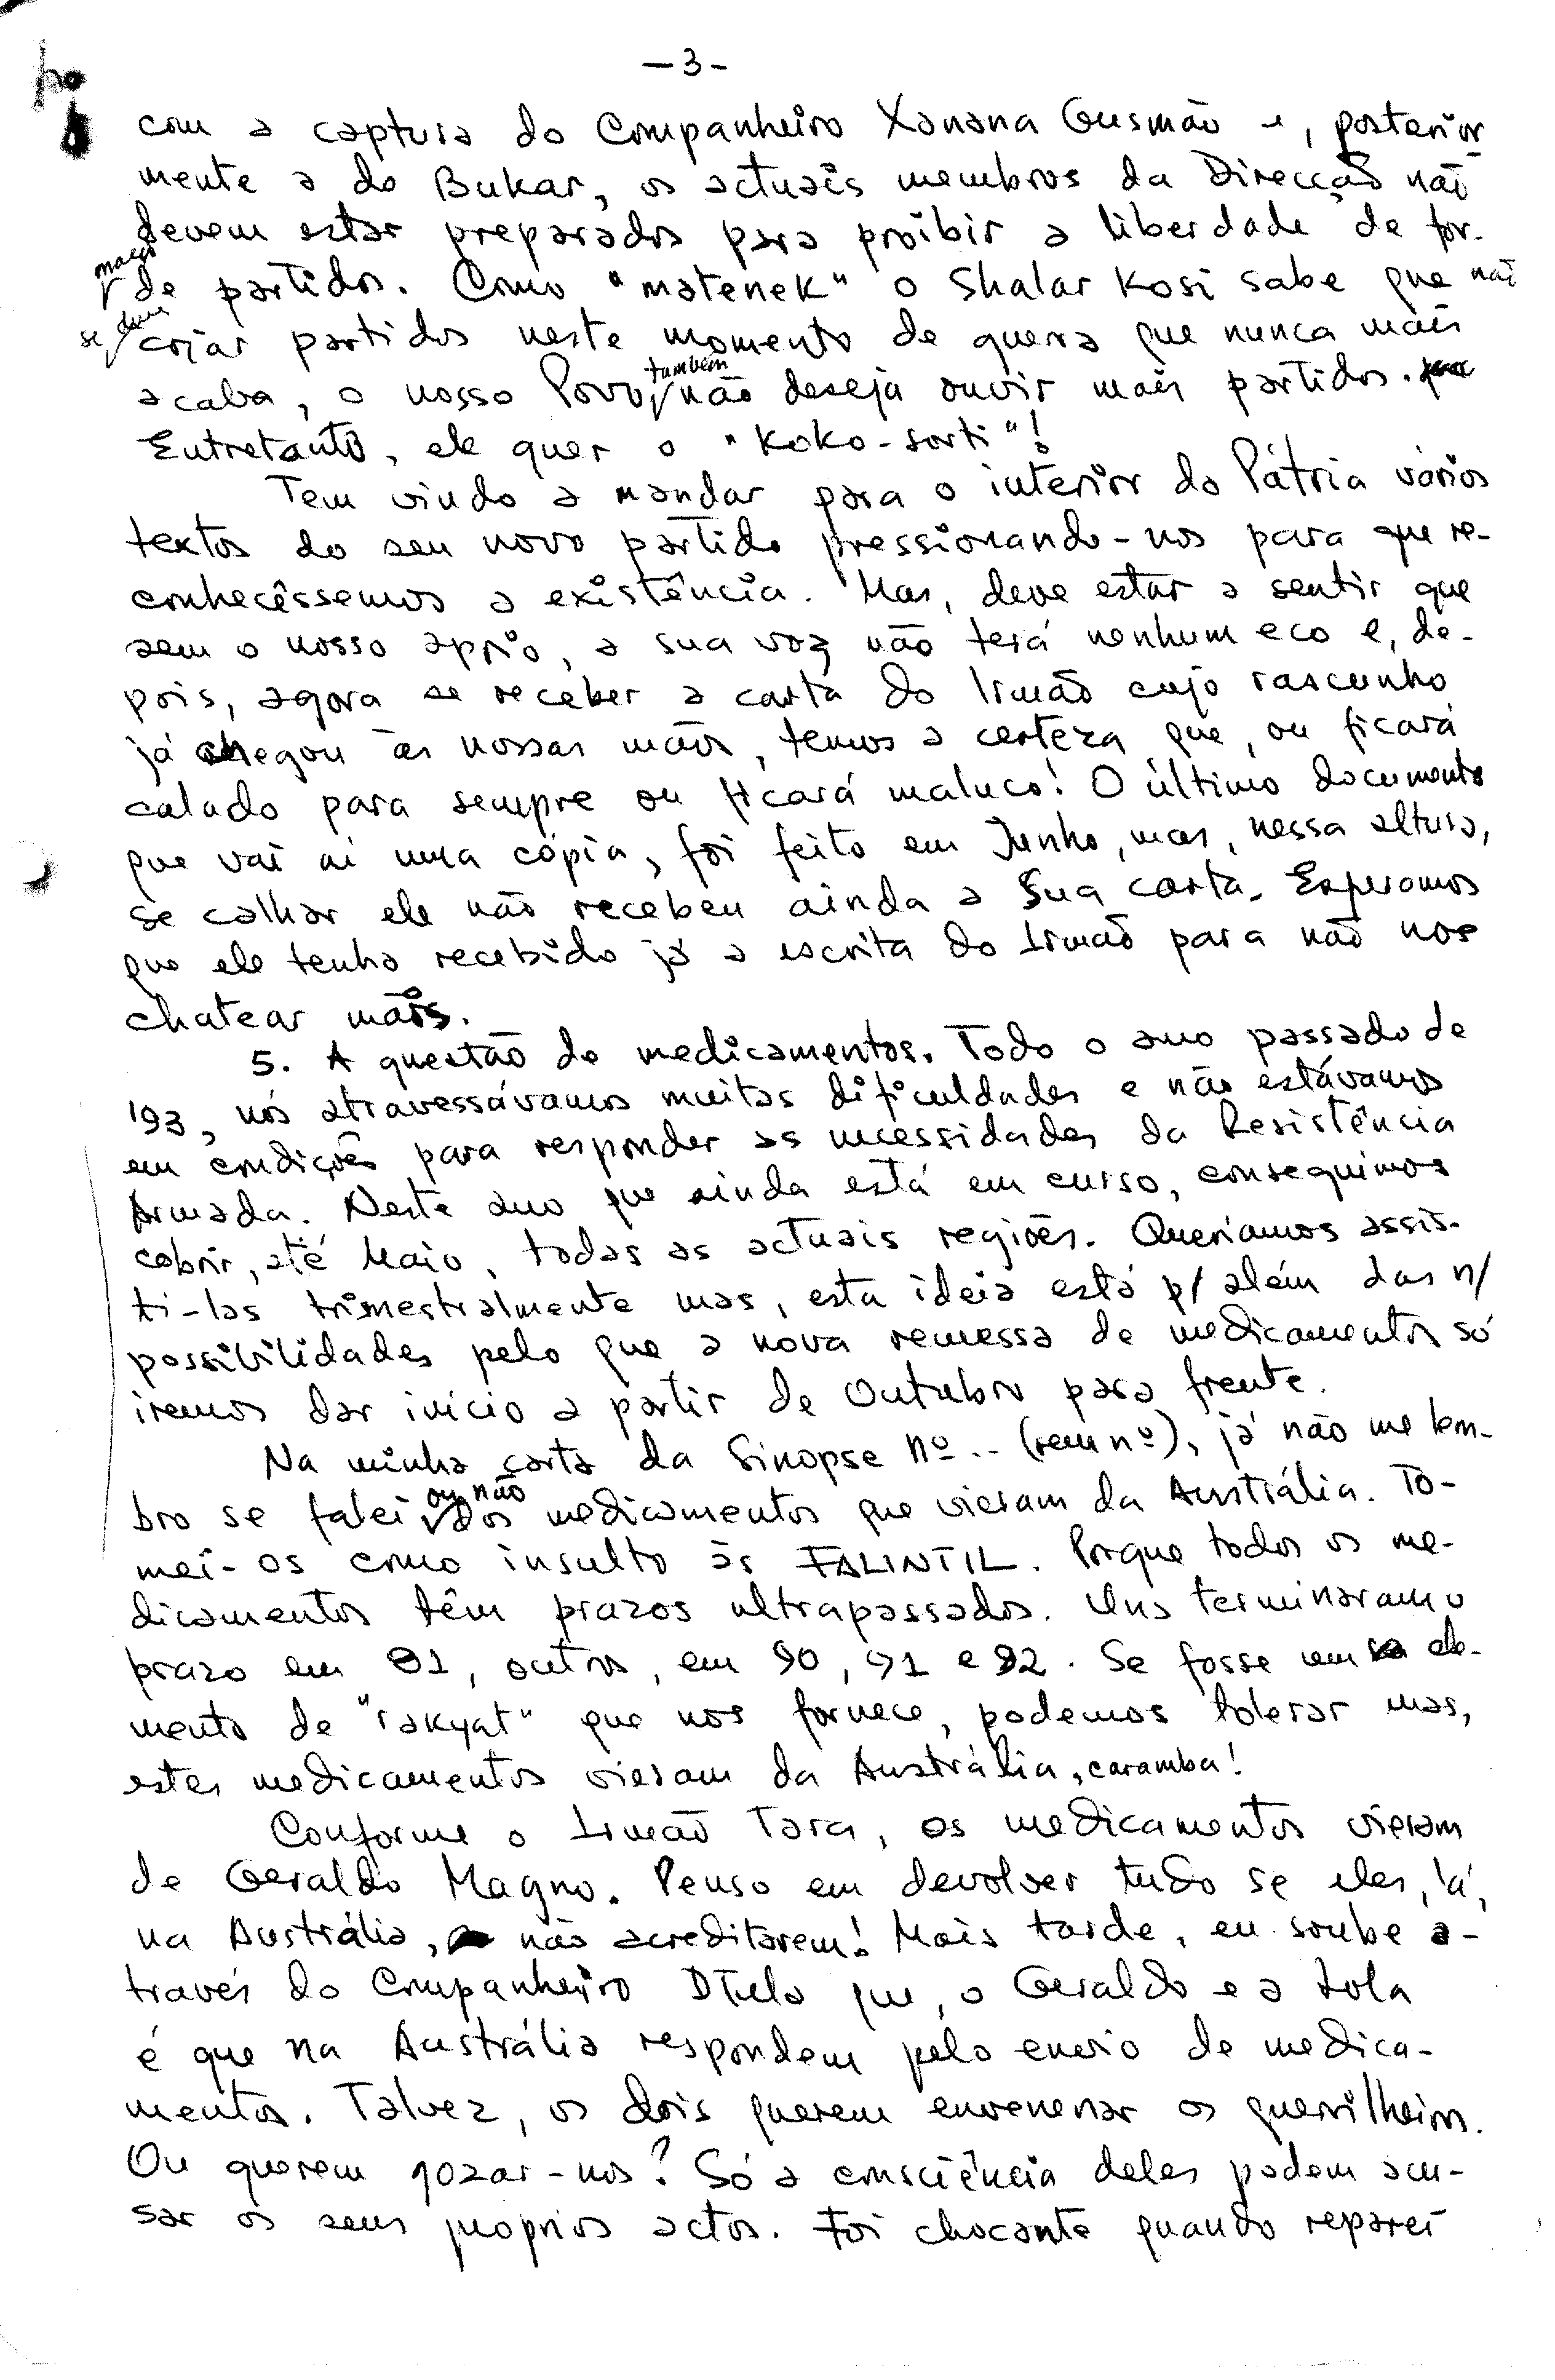 -3-
com a captura do Companheiro Xanana Gusmão e, posterior
mente a do Bukar, os actuais membros da Direcção não
devem estar preparados para proibir a liberdade de for-
mação
de partidos. Como "matenek" o Shalar Kosi sabe que não
se deve
criar partidos neste momento de guerra que nunca mais
também
acaba, o nosso Povo não deseja ouvir mais partidos.
Entretanto, ele quer o "Koko-sorti"!
Tem vindo a mandar para o interior da Pátria vários
textos do seu novo partido pressionando-nos para que re-
conhecêssemos a existência. Mas, deve estar a sentir que
sem o nosso apoio, a sua voz não terá nenhum eco e, de-
pois, agora se receber a carta do Irmão cujo rascunho
já chegou às nossas mãos, temos a certeza que, ou ficará
calado para sempre ou ficará maluco! O último documento
que vai aí uma cópia, foi feito em Junho, mas, nessa altura,
se calhar ele não recebeu ainda a Sua carta. Esperamos
que ele tenha recebido já a escrita do Irmão para não nos
chatear mais.
5. A questão de medicamentos. Todo o ano passado de
'93, nós atravessávamos muitas dificuldades e não estávamos
em condições para responder as necessidades da Resistência
Armada. Neste ano que ainda está em curso, conseguimos
cobrir, até Maio, todas as actuais regiões. Queríamos assis-
ti-las trimestralmente mas, esta ideia está p/ além das n/
possibilidades pelo que a nova remessa de medicamentos só
iremos dar início a partir de Outubro para frente.
Na minha carta da Sinopse nº .. (sem nº), já não me lem-
ou não
bro se falei dos medicamentos que vieram da Austrália. To-
mei-os como insulto às FALINTIL. Porque todos os me-
dicamentos têm prazos ultrapassados. Uns terminaram o
prazo em 81, outros, em 90, 91 e 92. Se fosse um ele-
mento de "rakyat" que nos fornece, podemos tolerar mas,
estes medicamentos vieram da Austrália, caramba!
Conforme o Irmão Tara, os medicamentos vieram
de Geraldo Magno. Penso em devolver tudo se eles, lá,
na Austrália, não acreditarem! Mais tarde, eu soube a-
través do Companheiro que, o Geraldo e a Lola
é que na Austrália respondem pelo envio de medica-
mentos. Talvez, os dois querem envenenar os guerrilheiros.
Ou querem gozar-nos? Só a consciência deles podem acu-
sar os seus proprios actos. Foi chocante quando reparei